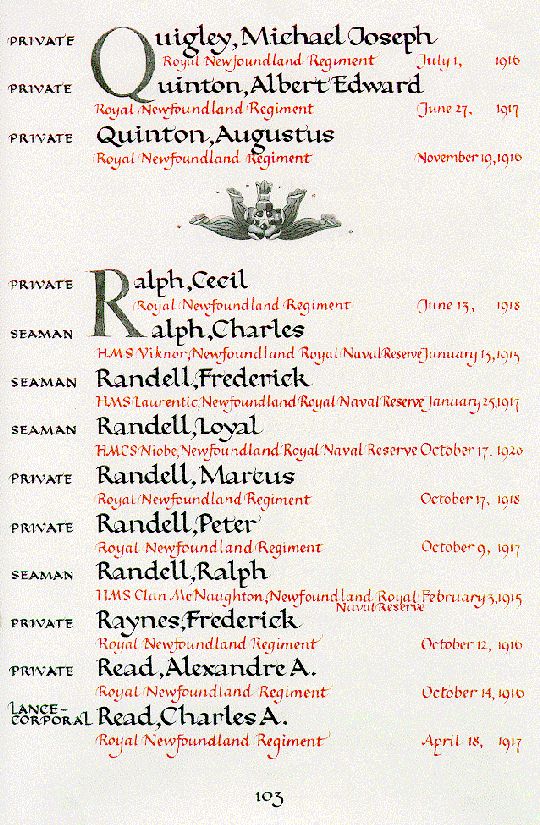 PRIVATE Quigley, Michael Joseph
Royal Newfoundland Regiment July 1, 1916
PRIVATE Quinton, Albert Edward
Royal Newfoundland Regiment June 27, 1917
PRIVATE Quinton, Augustus
Royal Newfoundland Regiment November 19, 1916
PRIVATE Ralph, Cecil
Royal Newfoundland Regiment June 13, 1918
SEAMAN Ralph, Charles
HMS Viknor, Newfoundland Royal Naval Reserve January 13, 1915
SEAMAN Randell, Frederick
HMS Laurentic, Newfoundland Royal Naval Reserve January 25, 1917
SEAMAN Randell, Loyal
HMCS Niobe, Newfoundland Royal Naval Reserve October 17, 1920
PRIVATE Randell, Marcus
Royal Newfoundland Regiment October 17, 1918
PRIVATE Randell, Peter
Royal Newfoundland Regiment October 9, 1917
SEAMAN Randell, Ralph
HMS Clan McNaughton, Newfoundland Royal February 3, 1915
Naval Reserve
PRIVATE Raynes, Frederick
Royal Newfoundland Regiment October 12, 1916
PRIVATE Read, Alexandre A.
Royal Newfoundland Regiment October 14, 1916
LANCE-
CORPORAL Read, Charles A.
Royal Newfoundland Regiment April 18, 1917
103